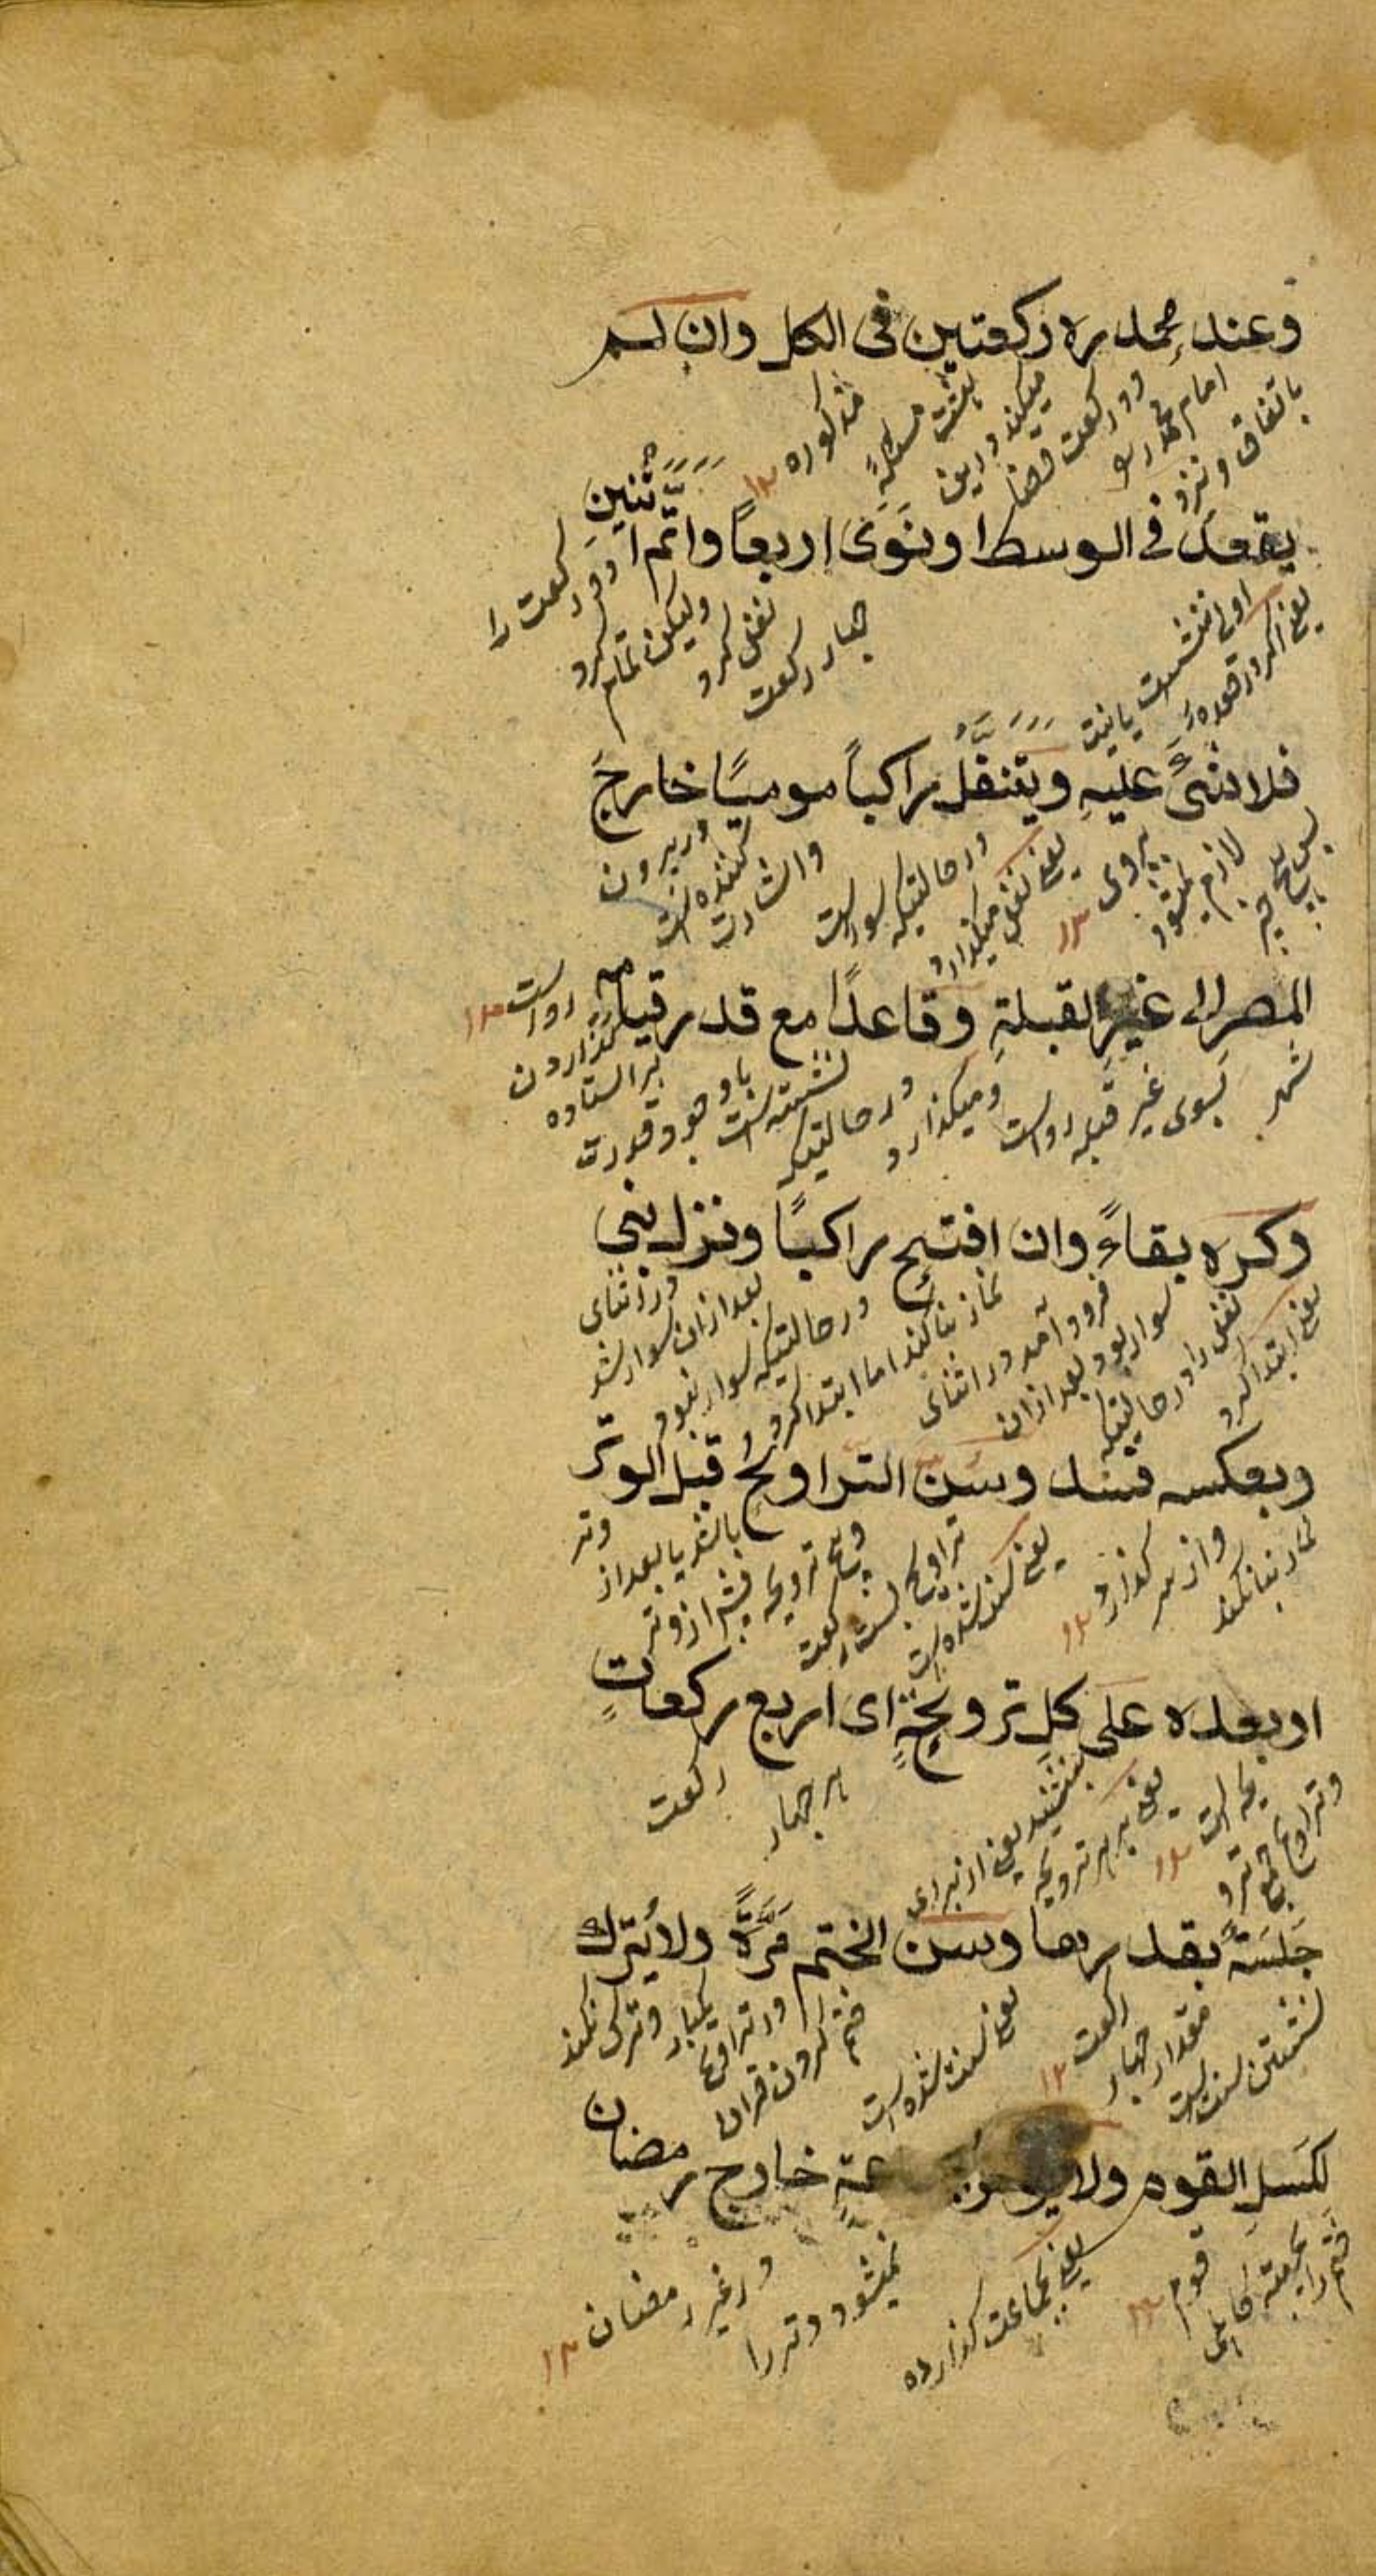 وعند محمد ره ركعتين فى الكل وان لم
باتفاق ونزد امام محمد رہ دو ركعت قضا ميكند درين هشت مسئلهٔ مذكوره ۱۲
يقعد فى الوسط او نَوَىٰ اربعاً واتم اثنين
يعنى اكر در قعدهٔ اولى ننشست يا نيت چهار ركعت نفل كرد وليكن تمام كرد دو ركعت را
فلا شىَٔ عليهِ ويتنفّلُ راكباً موميًا خارجَ
پس هيچ چيز لازم نميشود بروى ۱۲ يعنى نفل ميكذارد در حالتيكه سوار است واشارت كننده است در بيرون
المصر الى غيرِ القبلةِ وقاعدًا مع قدر قيامه
شهر بسوى غير قبله رواست وميكذارد در حالتيكه نشسته است با وجود قدرت بر استاده كذاردن رواست ۱۲
وكره بقاءً وان افتتح راكبًا ونزل بنى
يعنى ابتدا كرد نفل را در حالتيكه سوار بود بعد ازان فرود آمد در اثناى نماز بنا كند اما ابتدا كرد در حالتيكه سوار نبود بعد ازان سوار شد در اثناى
وبعكسه فسد وسن التراويح قبل الوتر
نماز بنا نكند واز سر كذارد ۱۲ يعنى سنت شده است تراويح بست ركعت وپنج ترويحه پيش از وتر باشد يا بعد از وتر
او بعده على كلِ ترويحةٍ اى اربع ركعاتٍ
وتراويح جمع ترويحه است ۱۲ يعنى بر هر ترويحه بنشيند يعنى از براى هر چهار ركعت
جَلسَةٌ بقدرها وسن الختم مَرَّةً ولا يُترك
نشستن سنت است مقدار چهار ركعت ۱۲ يعنى سنت شده است ختم كردن قران در تراويح يكبار وترك نكند
لكَسَلِ القوم ولا يوتر جماعةٍ خارج رمضان
ختم را بجهت كاهلى قوم ۱۲ يعنى بجماعت كذارده نميشود وتر را در غير رمضان ۱۲